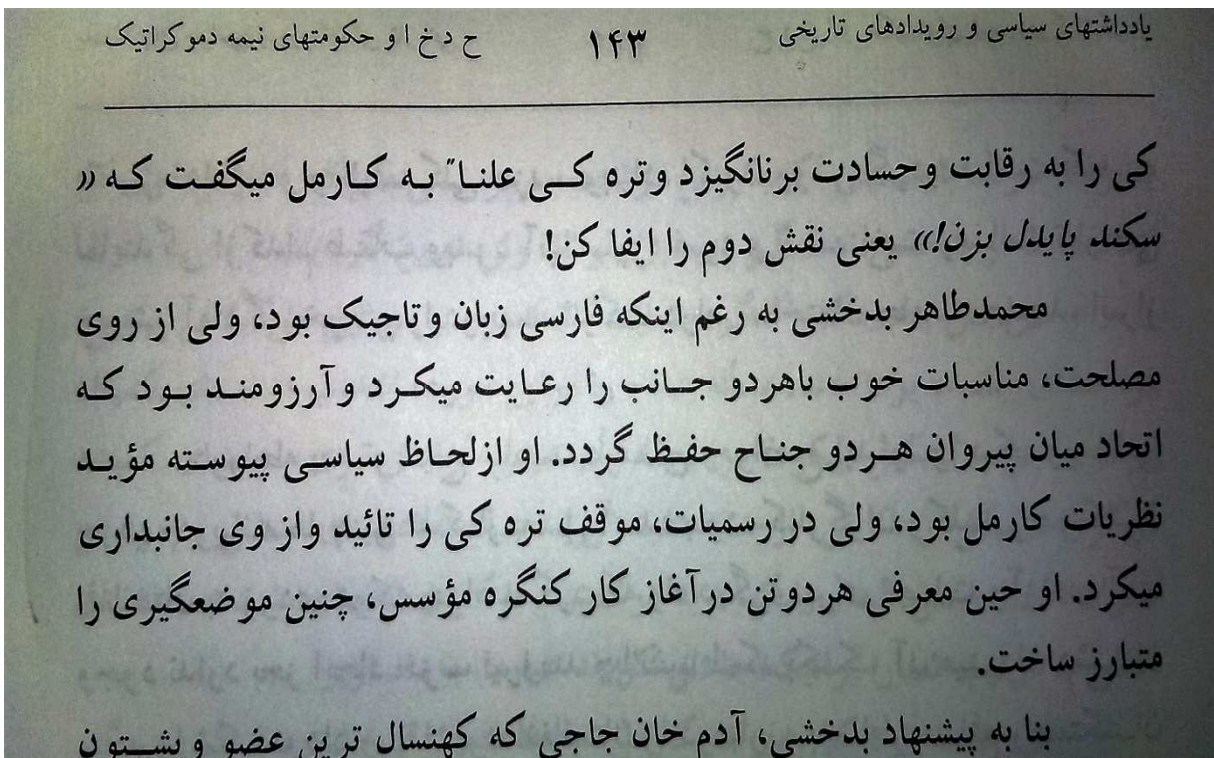 یادداشتهای سیاسی و رویدادهای تاریخی ۱۴۳ ح د خ ا و حکومتهای نیمه دموکراتیک
کی را به رقابت وحسادت برنانگیزد وتره کـی علنـا ً بـه کـارمل میگفـت کـه «
سکند پایدل بزن!» یعنی نقش دوم را ایفا کن!
محمدطاهر بدخشی به رغم اینکه فارسی زبان وتاجیک بود، ولی از روی
مصلحت، مناسبات خوب باهردو جـانب را رعـایت میکـرد وآرزومنـد بـود کـه
اتحاد میان پیروان هـردو جنـاح حفـظ گردد. او ازلحـاظ سیاسـی پیوسـته مؤیـد
نظریات کارمل بود، ولی در رسمیات، موقف تره کی را تائید واز وی جانبداری
میکرد. او حین معرفی هردوتن درآغاز کار کنگره مؤسس، چنین موضعگیری را
متبارز ساخت.
بنا به پیشنهاد بدخشی، آدم خان جاجی که کهنسال ترین عضو و پشـتون